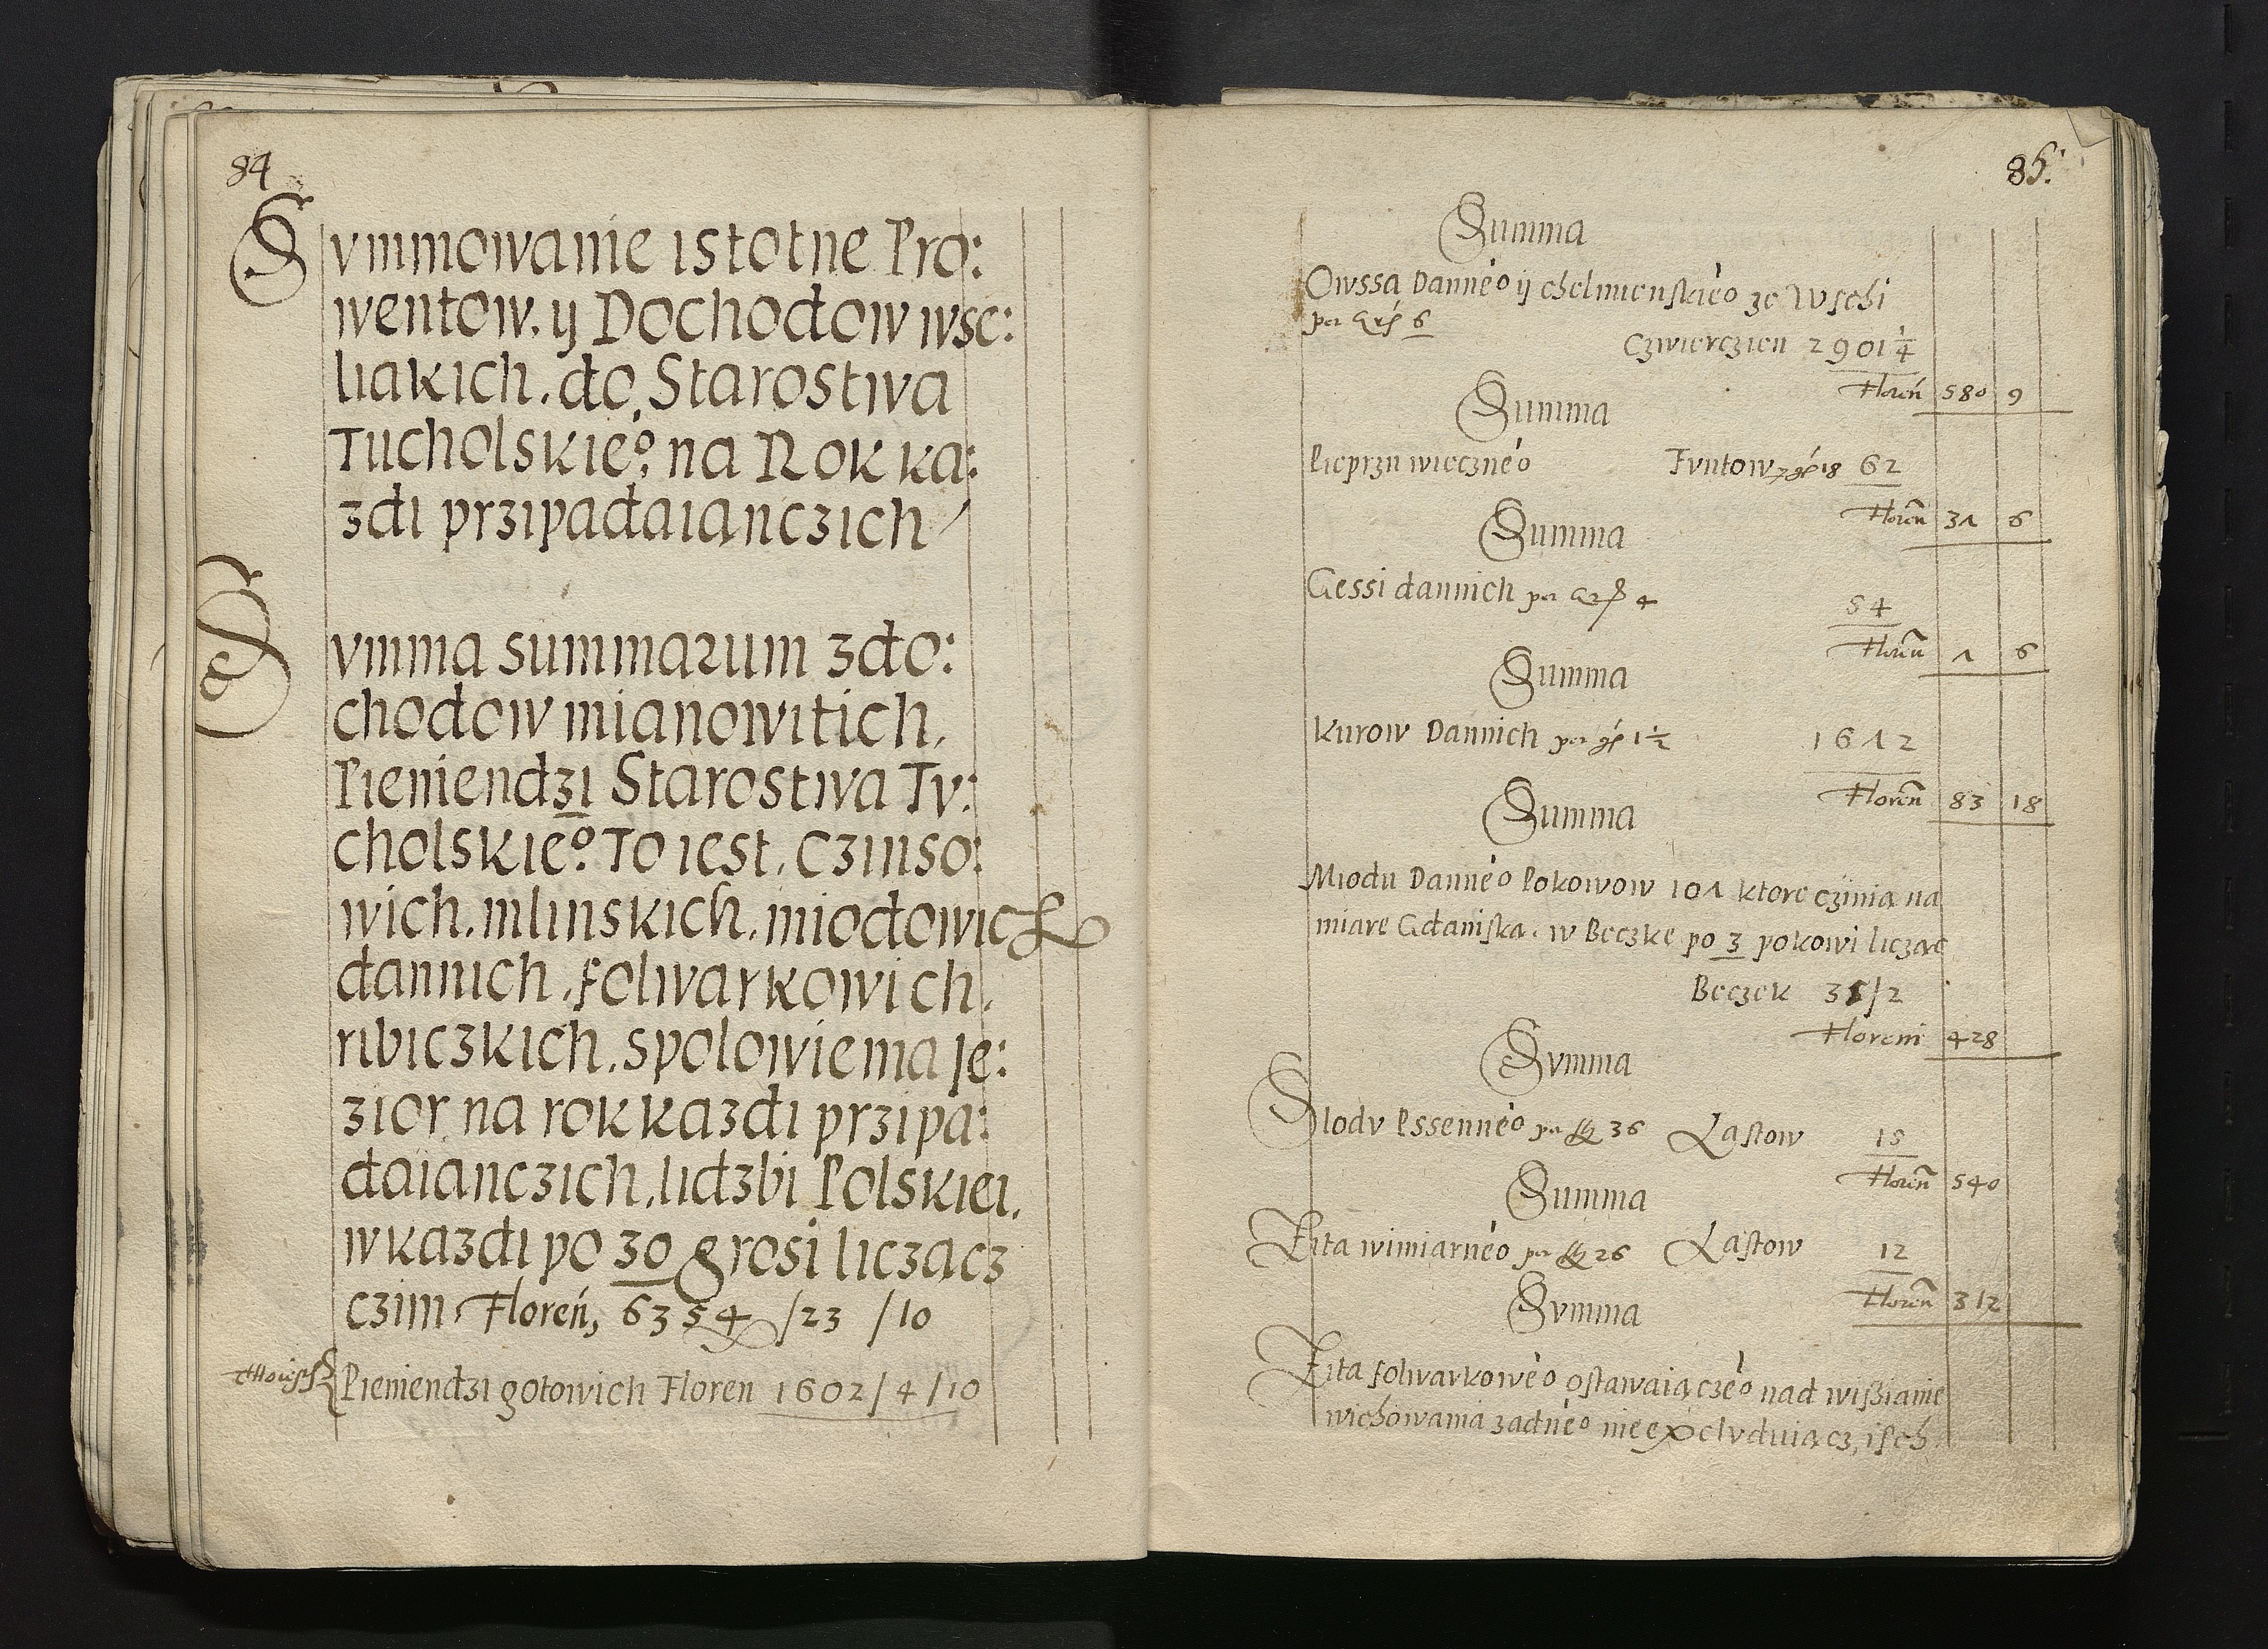 84
Summowanie istotne Pro:
wentow. ÿ Dochodow wse:
liakich. do Starostwa
Tucholskieº, na Rok ka:
zdi przipadaianczich
Summa summarum zdo:
chodow mianowitich,
Pieniendzi Starostwa Tu:
cholskieº. To iest. Czinso:
wich. mlinskich. miodowich
dannich. folwarkowich.
ribiczkich. spolowiema Je:
zior na rok kazdi przipa:
daianczich. lidzbi Polskiei.
w kazdi po 30 grosi liczacz
czim Floreń, 6354 /23 /10
Pieniendzi gotowich Floren 1602/4/10
85.
Summa
Owssa Dannéº ÿ chelmienskiéº ze Wschi
per Grs 6
Czwierczien 2901 1/4
Floreń 580 9
Summa
Pieprzu wiecznéº Funtow gs 18 62
Floreñ 31 6
Summa
Gessi dannich per Grs 4
54
Floreñ 1 6
Summa
Kurow Dannich per gs 1 1/2 1612
Floreñ 83 18
Summa
Miodu Dannéº Pokowow 101 ktore czinią na
miare Gdaniską. w Beczke po 3 pokowi licząc
Beczek 35/2
Floreni 428
Summa
Slodu Pssennéº per fl 36 Lastow 15
Floreñ 540
Summa
Zita wimiarnéº per fl 26 Lastow 12
Floreñ 312
Summa
Zita folwarkowéº ostawaiączéº nad wisianie
wichowania zadnéº nie excluduiącz, isch